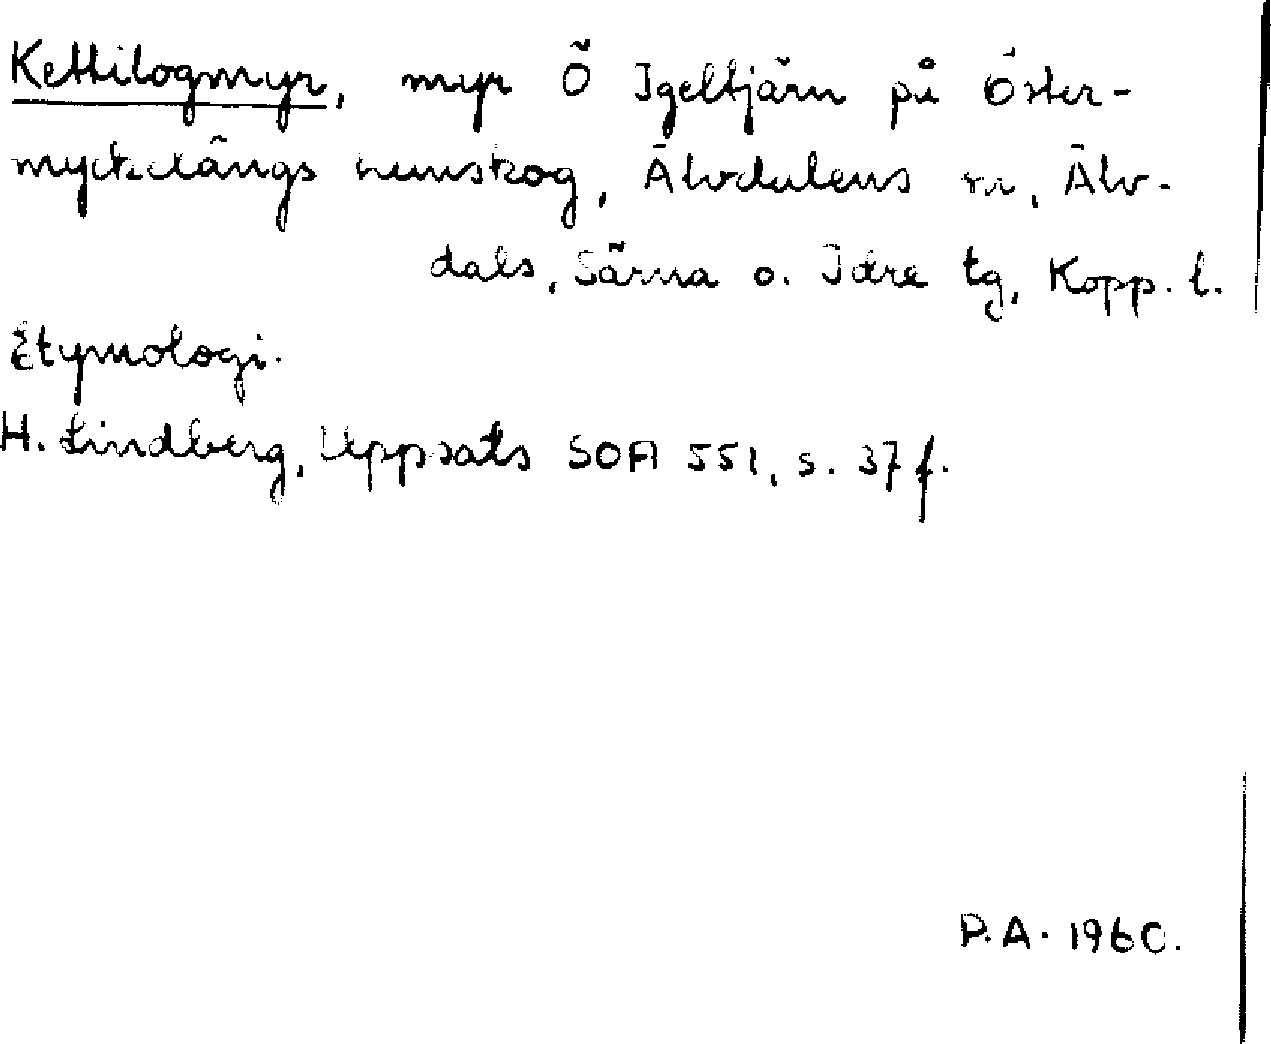 Kettilogmyr, myr Ö Igeltjärn på Öster-
myckelängs hemskog, Älvdalens sn, Älv-
dals, Särna o. Idre tg, Kopp. l.
Etymologi.
H. Lindberg, Uppsats SOA 551, s. 37 f.
P.A. 1960.